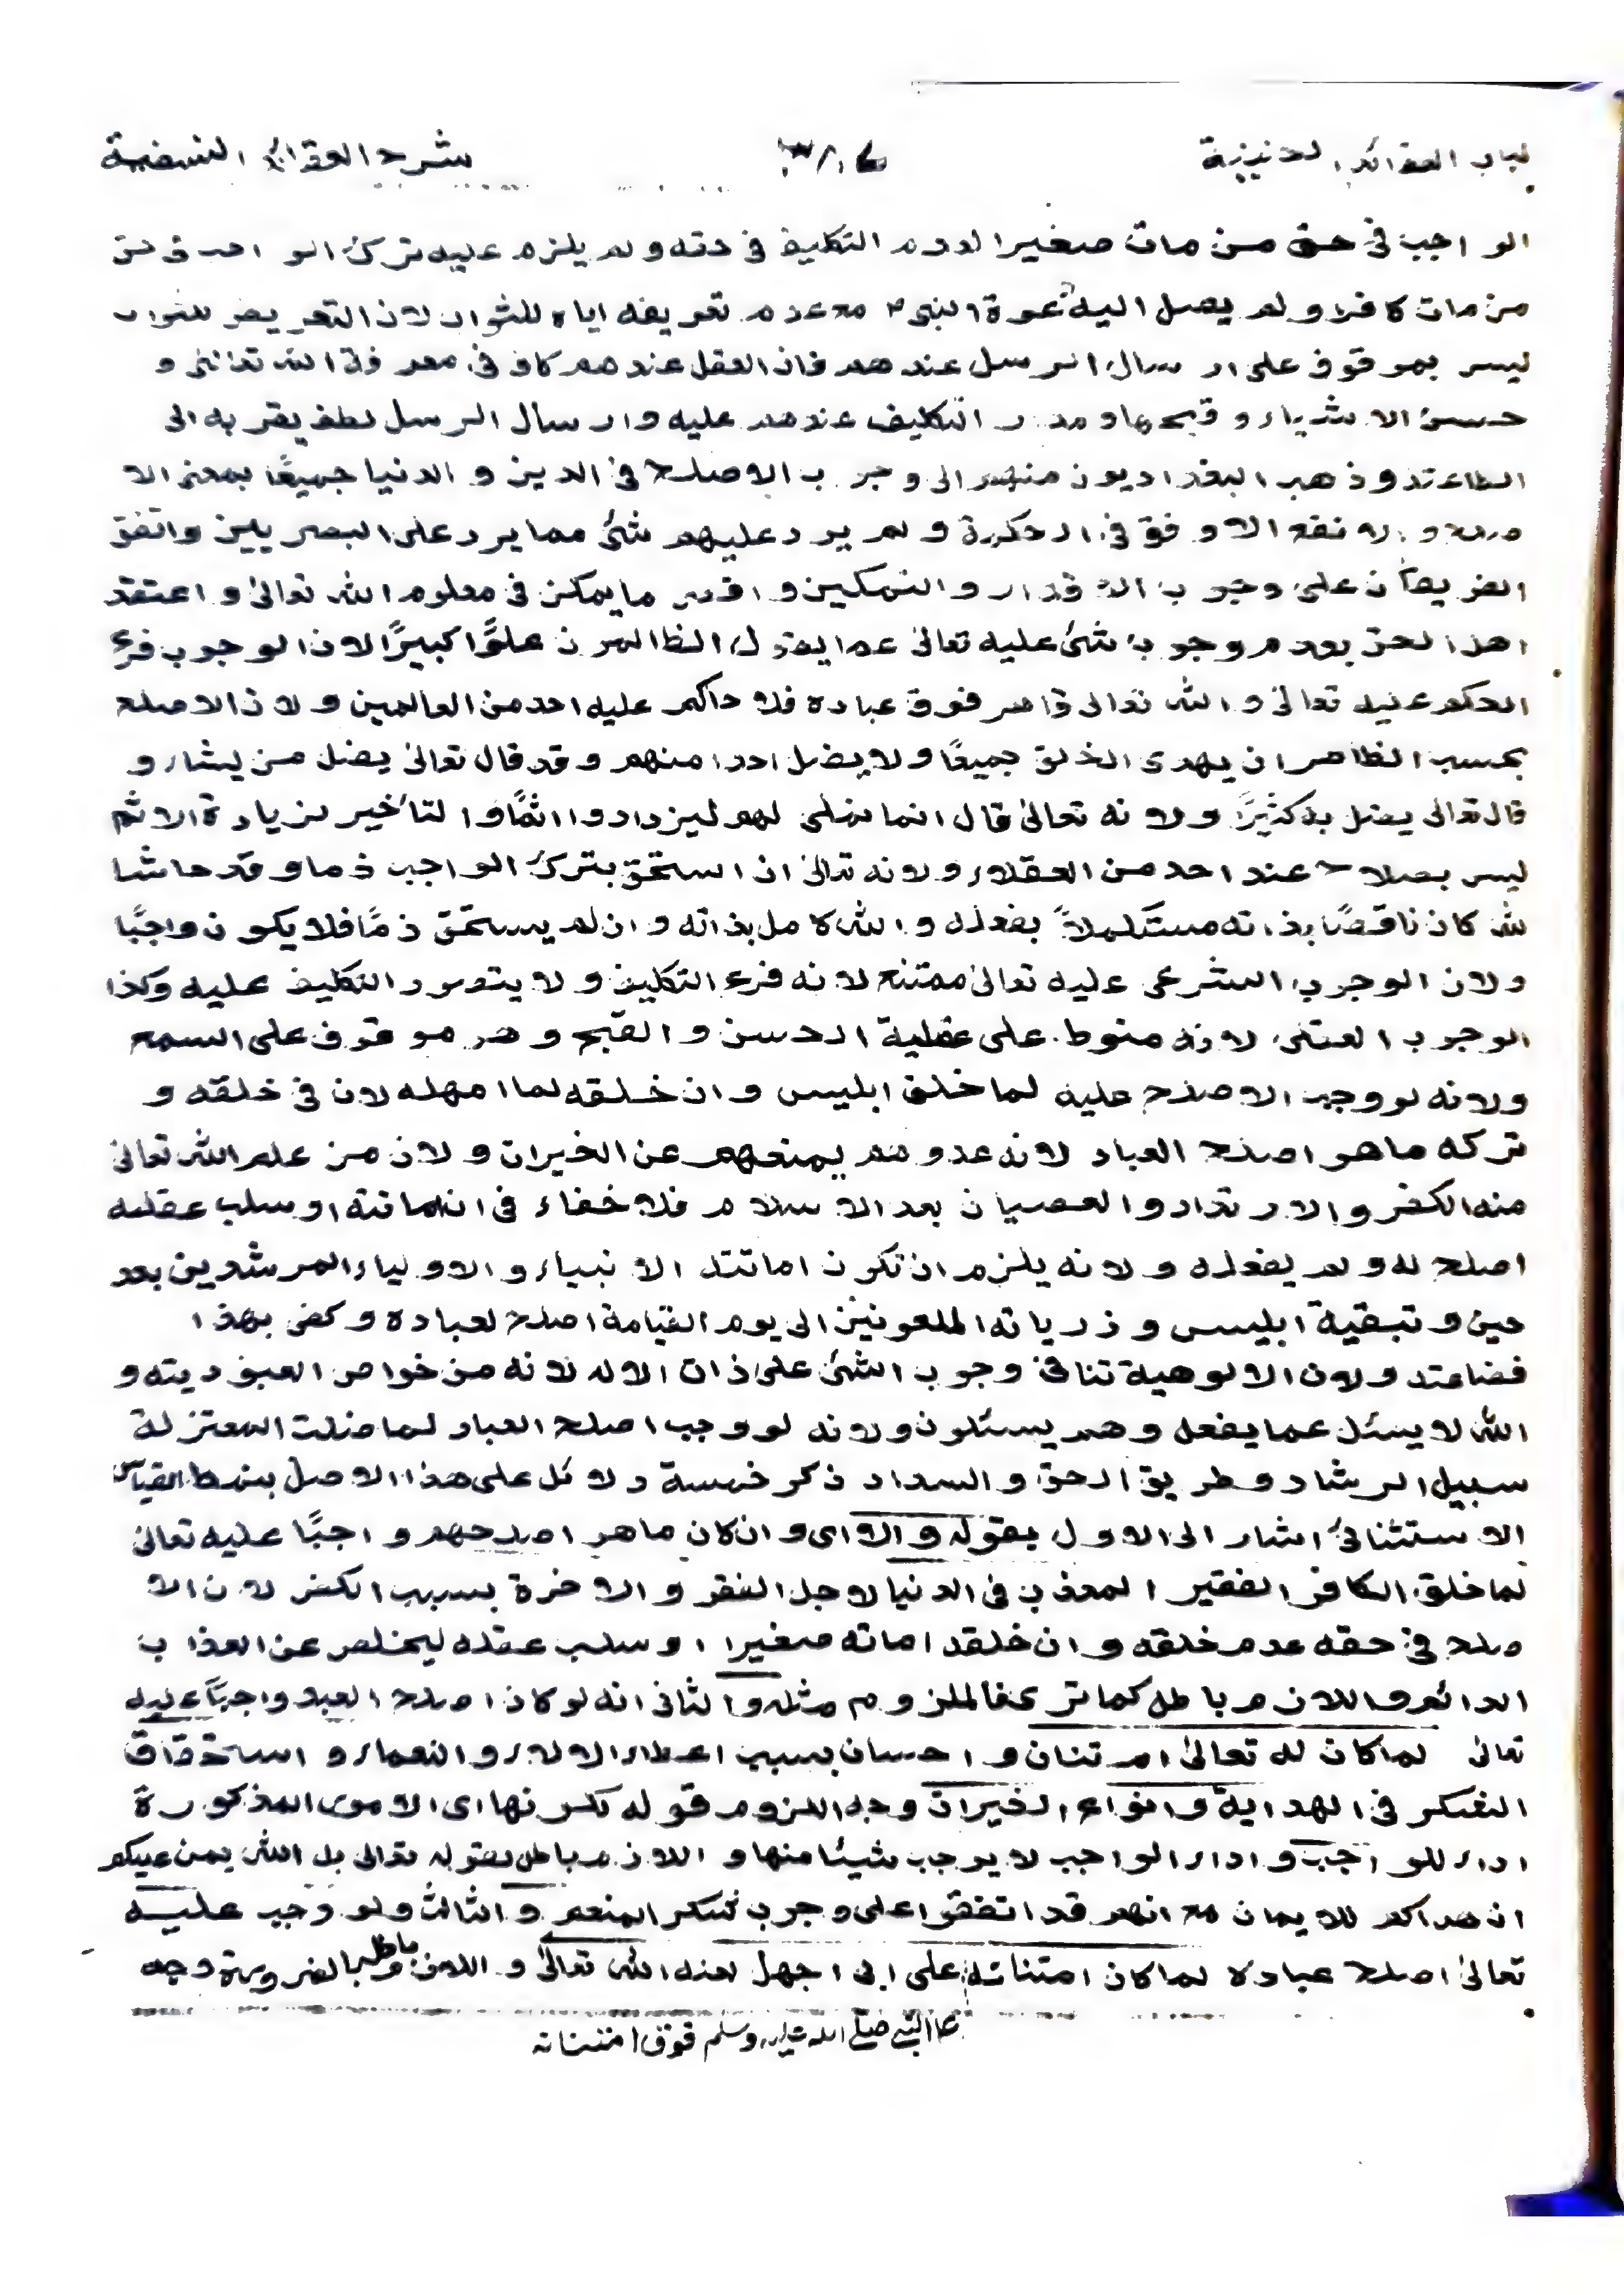 لباب العقائد الحنيفية شرح العقائد النسفية
الواجب في حق من مات صغيرا لعدم التكليف في حقه ولم يلزم عليه ترك الواجب في حق
من مات كافرا ولم يصل اليه دعوة النبي مع عدم تعريضه اياه للثواب لان التعريض للثواب
ليس بموقوف على ارسال الرسل عندهم فان العقل عندهم كاف في معرفة الله تعالى و
حسن الاشياء وقبحها ومدار التكليف عندهم عليه وارسال الرسل لطف يقربه الى
الطاعته وذهب البغداديون منهم الى وجوب الاصلح في الدين والدنيا جميعًا بمعنى الا
صلح والانفع الاوفق في الحكمة ولم يرد عليهم شئ مما يرد على البصريين واتفق
الفريقان على وجوب الاقدار والتمكين واقصى ما يمكن في معلوم الله تعالى واعتقد
اهل الحق بعدم وجوب شئ عليه تعالى عما يقول الظالمون علوًا كبيرًا لان الوجوب فرع
الحكم عليه تعالى والله تعالى قاهر فوق عباده فلا حاكم عليه احد من العالمين ولان الاصلح
بحسب الظاهر ان يهدى الخلق جميعًا ولا يضل احدا منهم وقد قال تعالى يضل من يشاء و
قال تعالى يضل به كثيرًا ولانه تعالى قال انما نملى لهم ليزدادوا اثمًا والتأخير لزيادة الاثم
ليس بصلاح عند احد من العقلاء ولانه تعالى ان استحق بترك الواجب ذما وقد حاشا
لله كان ناقصًا بذاته مستكملاً بفعله والله كامل بذاته وان لم يستحق ذمًا فلا يكون واجبًا
ولان الوجوب الشرعى عليه تعالى ممتنع لانه فرع التكليف ولا يتصور التكليف عليه وكذا
الوجوب العقلى لانه منوط على عقلية الحسن والقبح وهو موقوف على السمع
ولانه لو وجب الاصلح عليه لما خلق ابليس وان خلقه لما امهله لان في خلقه و
تركه ما هو اصلح العباد لانه عدوهم يمنعهم عن الخيرات ولان من علم الله تعالى
منه الكفر والارتداد والعصيان بعد الاسلام فلا خفاء في ان اماتته او سلب عقله
اصلح له ولم يفعله ولانه يلزم ان تكون اماتته الانبياء والاولياء المرشدين بعد
حين وتبقية ابليس وذرياته الملعونين الى يوم القيامة اصلح لعباده وكفى بهذا
فضاعته ولان الالوهية تنافى وجوب الشئ على ذات الاله لانه من خواص العبوديته و
الله لا يسئل عما يفعل وهم يسئلون ولانه لو وجب اصلح العباد لما ضلت المعتزلة
سبيل الرشاد وطريق الحق والسداد ذكر خمسة دلائل على هذا الاصل بنمط القياس
الاستثنائى اشار الى الاول بقوله والا اى وان كان ما هو اصلحهم واجبًا عليه تعالى
لما خلق الكافر الفقير المعذب فى الدنيا لاجل الفقر والاخرة بسبب الكفر لان الا
صلح في حقه عدم خلقه وان خلقه اماته صغيرا او سلب عقله ليخلص عن العذاب
الدائم واللازم باطل كما ترى فالملزوم مثله والثانى انه لو كان اصلح العبد واجبًا عليه
تعالى لما كان له تعالى امتنان واحسان بسبب اعطاء الالاء والنعماء واستحقاق
الشكر في الهداية وانواع الخيرات وجه اللزوم قوله لكونها اى الامور المذكورة
اداء للواجب واداء الواجب لا يوجب شيئا منها واللازم باطل بقوله تعالى بل الله يمن عليكم
ان هداكم للايمان مع انهم قد اتفقوا على وجوب شكر المنعم والثالث ولو وجب عليه
تعالى اصلح عباده لما كان امتنانه على ابى جهل لعنه الله تعالى واللازم باطل بالضرورة وجه
على النبي صلى الله عليه وسلم فوق امتنانه